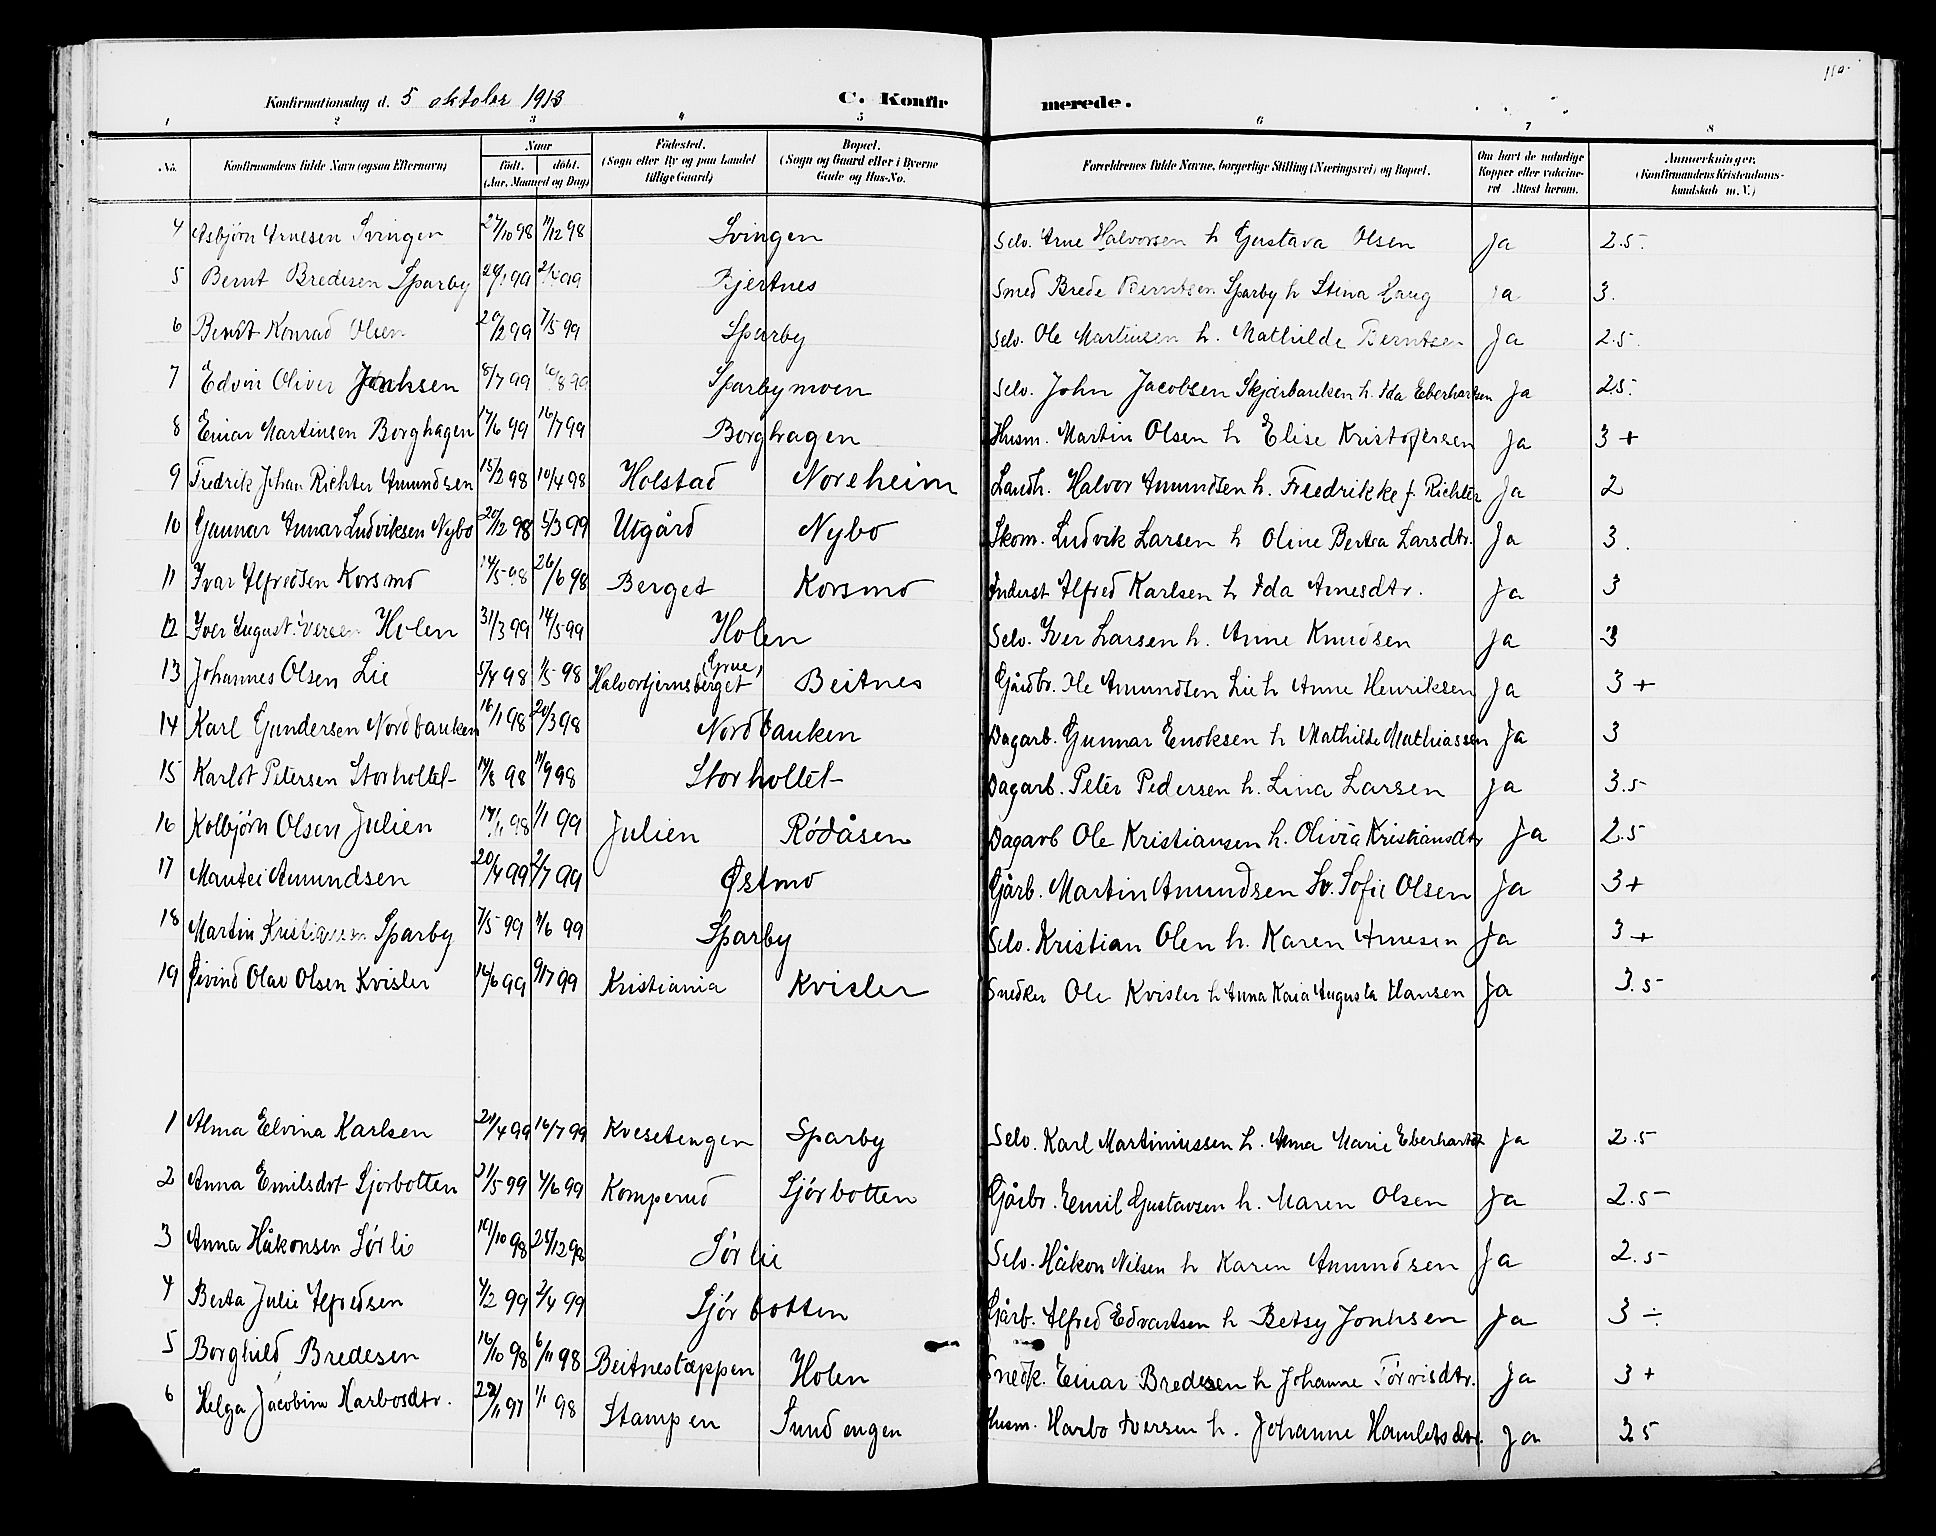 110.
Konfirmationsdag d. 5 oktober 1913 C. Konfirmerede.
1 2 3 4 5 6 7 8
No. Konfirmandens fulde Navn (ogsaa Efternavn) Naar født. døbt. (Aar, Maaned og Dag) Fødested. (Sogn eller By og paa Landet tillige Gaard) Bopæl. (Sogn og Gaard eller i Byerne Gade og Hus-No. Forældrenes fulde Navne, borgerlige Stilling (Næringsvei) og Bopæl. Om havt de naturlige Kopper eller vakcineret Attest herom. Anmærkninger, (Konfirmandens Kristendomskundskab m. V.)
4 Asbjørn Arnesen Svingen 27/10 98 11/12 98 Svingen Selv. Arne Halvorsen h Gustava Olsen Ja 2.5.
5 Bernt Bredesen Sparby 99 99 Bjertnes Smed Brede Berntsen Sparby h Stina Haug Ja 3.
6 Bernt Konrad Olsen 20/2 99 7/5 99 Sparby Selv. Ole Martinsen h. Mathilde Berntsen Ja 2.5.
7 Edvin Oliver Jonhsen 8/7 99 /8 99 Sparbymoen Selv. John Jacobsen Skjærbanken h. Ida Eberhartsen Ja 2.5.
8 Einar Martinsen Borghagen 17/6 99 16/7 99 Borghagen Husm. Martin Olsen h Elise Kristofersen Ja 3 +
9 Fredrik Johan Richter Amundsen 15/2 98 10/4 98 Holstad Noreheim Landh. Halvor Amundsen h. Fredrikke f. Richter Ja 2
10 Gunnar Annar Ludviksen Nybo 20/12 98 5/3 99 Utgård Nybo Skom. Ludvik Larsen h Oline Berta Larsdtr. Ja 3.
11 Ivar Alfredsen Korsmo 14/5 98 26/6 98 Berget Korsmo Inderst Alfred Karlsen h Ida Arnesdtr. Ja 3
12 Iver August Iversen Holen 31/3 99 14/5 99 Holen Selv. Iver Larsen h. Anne Knudsen Ja 3
13 Johannes Olsen Lie 5/4 98 1/5 98 Halvortjernsberget (Grue) Beitnes Gårdbr. Ole Amundsen Lie h Anne Henriksen Ja 3 +
14 Karl Gundersen Nordbanken 16/1 98 20/3 98 Nordbanken Dagarb. Gunnar Enoksen h Mathilde Mathiassen Ja 3
15 Karlot Petersen Storholtet 14/8 98 11/9 98 Storholtet Dagarb. Peter Pedersen h. Lina Larsen Ja 3.5
16 Kolbjørn Olsen Julien 17/11 98 1/1 99 Julien Rødåsen Dagarb Ole Kristiansen h. Olivia Kristiansdtr Ja 2.5
17 Mantei Amundsen 20/4 99 2/7 99 Østmo Gårb. Martin Amundsen h. Sofie Olsen Ja 3 +
18 Martin Kristiansen Sparby 7/5 99 4/6 99 Sparby Selv. Kristian Olen h. Karen Arnesen Ja 3 +
19 Øivind Olav Olsen Kvisler 16/6 99 9/7 99 Kristiania Kvisler Snedker Ole Kvisler h Anna Kaia Augusta Hansen Ja 3.5
1 Alma Elvina Karlsen 29/4 99 16/7 99 Kvesetengen Sparby Selv. Karl Martiniussen h. Anna Marie Eberharts Ja 2.5
2 Anna Emilsdot Sjørbotten 21/5 99 4/6 99 Komperud Sjørbotten Gårbr. Emil Gustavsen h. Maren Olsen Ja 2.5
3 Anna Håkonsen Sørlie 10/10 98 25/12 98 Sørlie Selv. Håkon Nilsen h Karen Amundsen Ja 2.5
4 Berta Julie Alfredsen 4/2 99 2/4 99 Sjørbotten Gårb. Alfred Edvartsen h Betsy Jonhsen Ja 3 ÷
5 Borghild Bredesen 16/10 98 6/11 98 Beitnestæppen Holen Snedk. Einar Bredesen h Johanne Tørrisdtr. Ja 3 +
6 Helga Jacobine Harbosdtr. 22/11 97 1/1 98 Stampen Sundengen Husm. Harbo Iversen h. Johanne Hamletsdtr. Ja 3.5